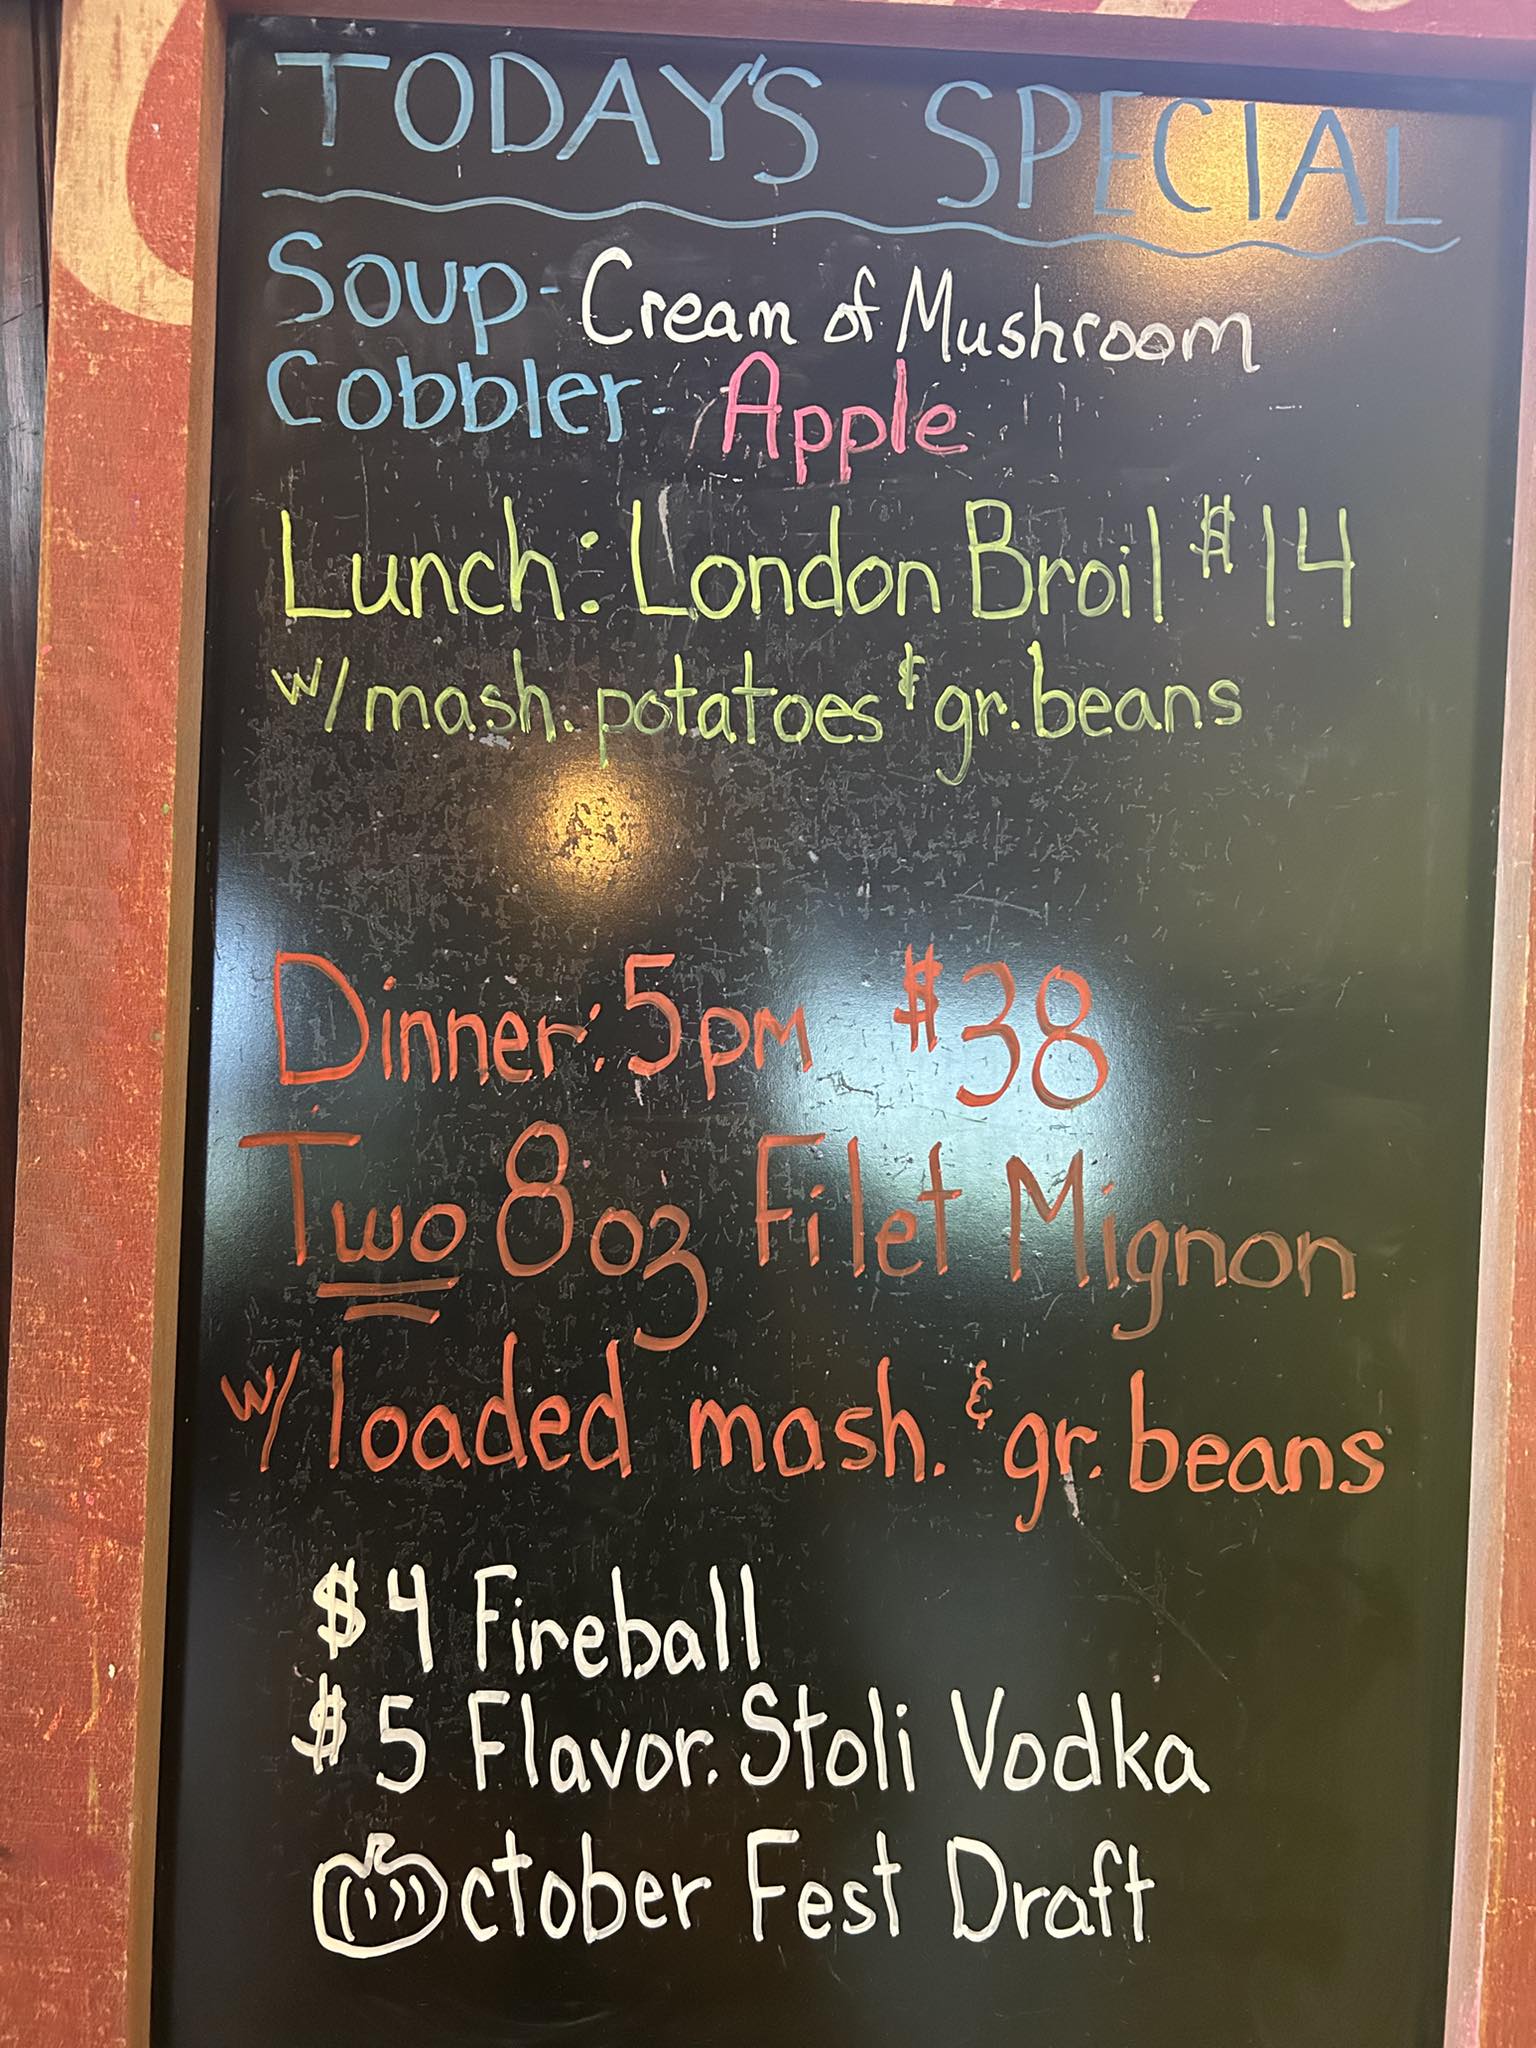 TODAY'S SPECIAL
Soup - Cream of Mushroom
Cobbler - Apple
Lunch: London Broil $14
w/ mash. potatoes & gr. beans
Dinner: 5pm $38
Two 8oz Filet Mignon
w/ loaded mash. & gr. beans
$4 Fireball
$5 Flavor. Stoli Vodka
October Fest Draft